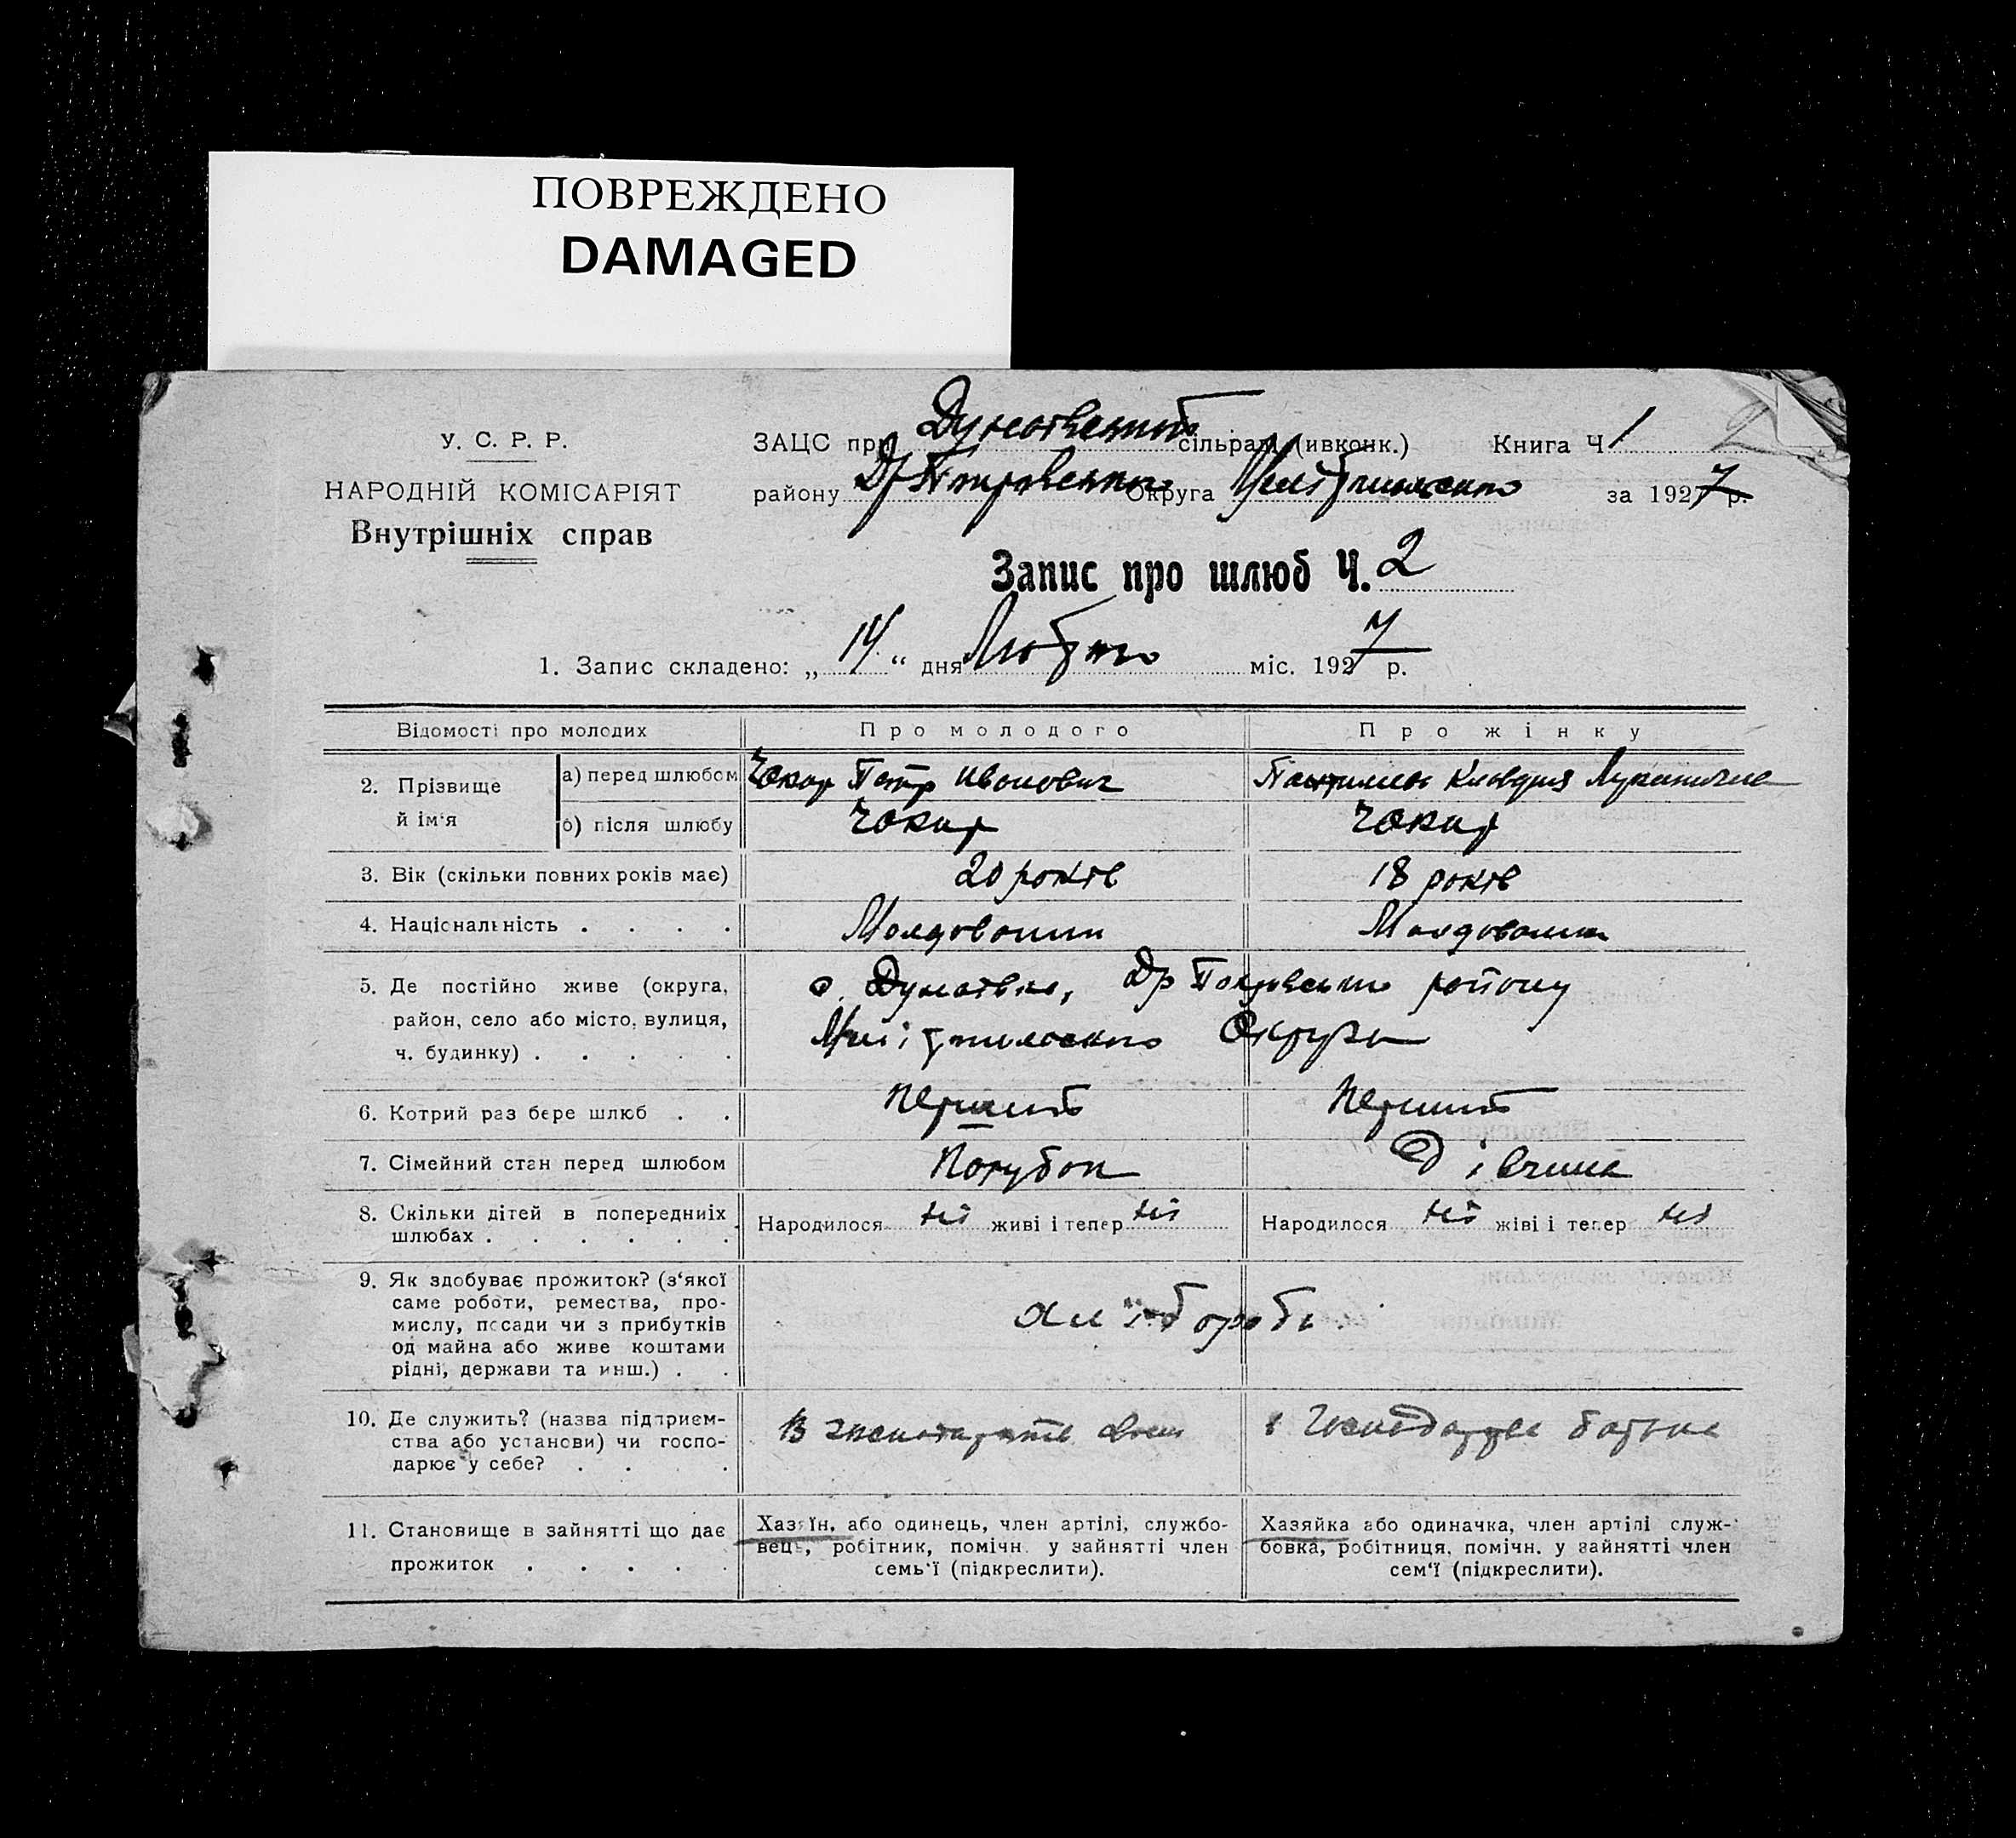 ПОВРЕЖДЕНО
DAMAGED
У. С. Р. Р.
НАРОДНІЙ КОМІСАРІЯТ
Внутрішніх справ
ЗАЦС при сільраді (ивконк.) Книга Ч 1
району Округа за 1927 р.
Запис про шлюб Ч. 2
1. Запис складено: „ 14 “ дня Лютого міс. 1927 р.
Відомості про молодих Про молодого Про жінку
2. Прізвище й ім'я
а) перед шлюбом Чокир Петр Иванович Клавдия
б) після шлюбу Чокир Чокир
3. Вік (скільки повних років має) 20 років 18 років
4. Національність . . . . Молдованин
5. Де постійно живе (округа,
район, село або місто, вулиця,
ч. будинку) . . . . . Округи
с. району
6. Котрий раз бере шлюб . . Перший Перший
7. Сімейний стан перед шлюбом Парубок Дівчина
8. Скільки дітей в попередніх
шлюбах . . . . . .
Народилося ні живі і тепер ні Народилося ні жіві і тепер ні
9. Як здобуває прожиток? (з'якої
саме роботи, ремества, про-
мислу, посади чи з прибутків
од майна або живе коштами
рідні, держави та инш.) . .
хліборобь
10. Де служить? (назва підприєм-
ства або установи) чи госпо-
дарює у себе? . . . .
В батька
11. Становище в зайнятті що дає
прожиток . . . . .
Хазяїн, або одинець, член артілі, службо-
вець, робітник, помічн. у зайнятті член
семь'ї (підкреслити).
Хазяйка або одиначка, член артілі служ-
бовка, робітниця, помічн. у зайнятті член
сем'ї (підкреслити).